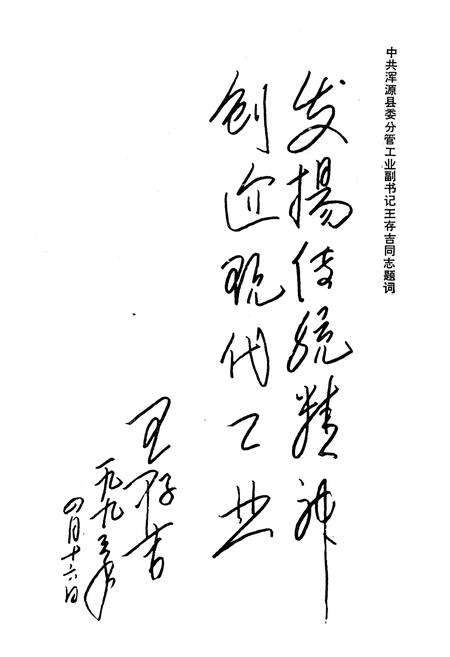 中共浑源县委分管工业副书记王存吉同志题词
发揚传统精神
创近现代工业
王存吉
一九九三年
四月十六日